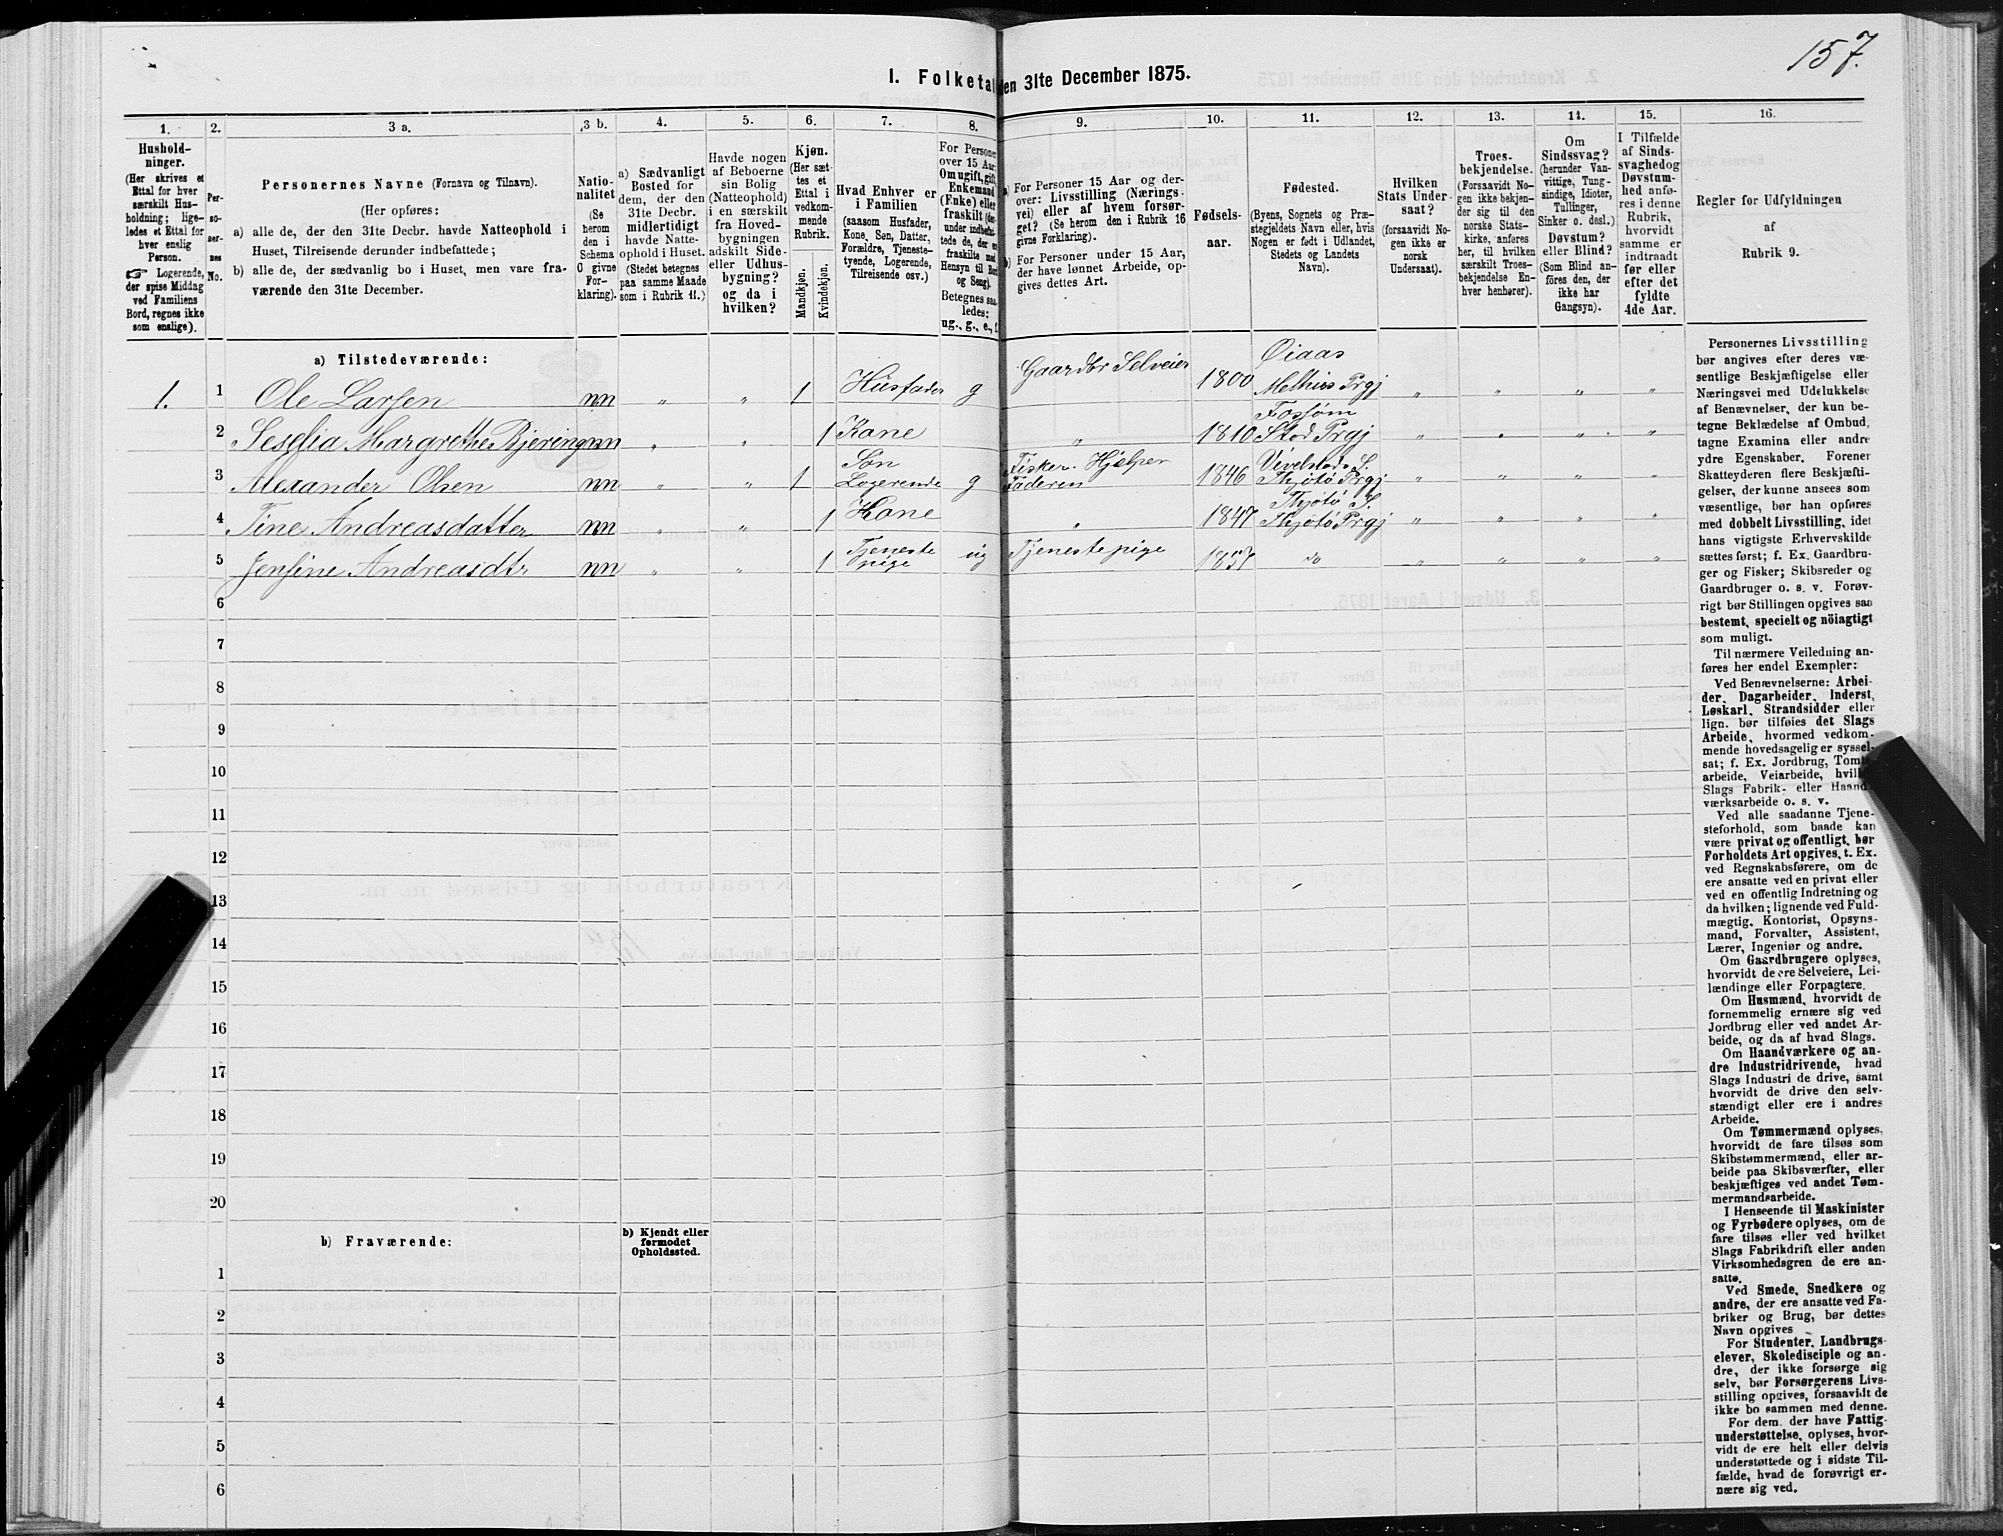 157.
1. Folketal den 31te December 1875.
1.
Hushold-
ninger.
(Her skrives et
Ettal for hver
særskilt Hus-
holdning; lige-
ledes et Ettal for
hver enslig
Person.
☞ Logerende,
der spise Middag
ved Familiens
Bord, regnes ikke
som enslige).
2.
Per-
so-
ner-
nes
No.
3 a.
Personernes Navne (Fornavn og Tilnavn).
(Her opføres:
a) alle de, der den 31te Decbr. havde Natteophold i
Huset, Tilreisende derunder indbefattede;
b) alle de, der sædvanlig bo i Huset, men vare fra-
værende den 31te December.
3 b.
Natio-
nalitet
(Se
herom
den i
Schema
C givne
For-
klaring).
4.
a) Sædvanligt
Bosted for
dem, der den
31te Decbr.
midlertidigt
havde Natte-
ophold i Huset.
(Stedet betegnes
paa samme Maade
som i Rubrik 11.)
5.
Havde nogen
af Beboerne
sin Bolig
(Natteophold)
i en særskilt
fra Hoved-
bygningen
adskilt Side-
eller Udhus-
bygning?
og da i
hvilken?
6.
Kjøn.
(Her sæt-
tes et
Ettal i
vedkom-
mende
Rubrik.
Mandkjøn.
Kvindekjøn.
7.
Hvad Enhver er
i Familien
(saasom Husfader,
Kone, Søn, Datter,
Forældre, Tjeneste-
tyende, Logerende,
Tilreisende osv.)
8.
For Personer
over 15 Aar:
Om ugift, gift,
Enkemand
(Enke) eller
fraskilt (der-
under indbefat-
tede de, der ere
fraskilte med
Hensyn til Bord
og Seng).
Betegnes saa-
ledes:
ug., g., e., f.
9.
a) For Personer 15 Aar og der-
over: Livsstilling (Nærings-
vei) eller af hvem forsør-
get? (Se herom den i Rubrik 16
givne Forklaring).
b) For Personer under 15 Aar,
der have lønnet Arbeide, op-
gives dettes Art.
10.
Fødsels-
aar.
11.
Fødested.
(Byens, Sognets og Præ-
stegjeldets Navn eller, hvis
Nogen er født i Udlandet,
Stedets og Landets
Navn).
12.
Hvilken
Stats Under-
saat?
(forsaavidt No-
gen ikke er
norsk
Undersaat).
13.
Troes-
bekjendelse.
(Forsaavidt No-
gen ikke bekjen-
der sig til den
norske Stats-
kirke, anføres
her, til hvilken
særskilt Troes-
bekjendelse En-
hver henhører).
14.
Om
Sindssvag?
(herunder Van-
vittige, Tung-
sindige, Idioter,
Tullinger,
Sinker o. desl.)
Døvstum?
eller Blind?
(Som Blind an-
føres den, der
ikke har
Gangsyn).
15.
I Tilfælde
af Sinds-
svaghed og
Døvstum-
hed anfø-
res i denne
Rubrik,
hvorvidt
samme er
indtraadt
før eller
efter det
fyldte
4de Aar.
16.
Regler for Udfyldningen
af
Rubrik 9.
a) Tilstedeværende:
1. 1 Ole Larsen nn „ „ 1 Husfader g Gaardbr Selveier 1800 Øiaas Melhus Prgj „ „ „ „
2 Seselia Margrethe Bjering nn „ „ 1 Kone „ 1810 Fossom Stod Prgj „ „ „ „
3 Alexander Olsen nn „ „ 1 Søn Logerende g Fisker. Hjelper Faderen 1846 Vivelstads S. Thjøtø Prgj „ „ „ „
4 Tine Andreasdatter nn „ „ 1 Kone „ 1847 Thjøtø S. Thjøtø Prgj „ „ „ „
5 Jensine Andreasdtr nn „ „ 1 Tjeneste pige ug Tjenestepige 1857 do „ „ „ „
6
7
8
9
10
11
12
13
14
15
16
17
18
19
20
b) Fraværende:
b) Kjendt eller
formodet
Opholdssted.
1
2
3
4
5
6
Personernes Livsstilling
bør angives efter deres væ-
sentlige Beskjæftigelse eller
Næringsvei med Udelukkelse
af Benævnelser, der kun be-
tegne Beklædelse af Ombud,
tagne Examina eller andre
ydre Egenskaber. Forener
Skatteyderen flere Beskjæfti-
gelser, der kunne ansees som
væsentlige, bør han opføres
med dobbelt Livsstilling, idet
hans vigtigste Erhvervskilde
sættes først; f. Ex. Gaardbru-
ger og Fisker; Skibsreder og
Gaardbruger o. s. v. Forøv-
rigt bør Stillingen opgives saa
bestemt, specielt og nöiagtigt
som muligt.
Til nærmere Veiledning an-
føres her endel Exempler:
Ved Benævnelserne: Arbei-
der, Dagarbeider, Inderst,
Løskarl, Strandsidder eller
lign. bør tilføies det Slags
Arbeide, hvormed vedkom-
mende hovedsagelig er syssel-
sat; f. Ex. Jordbrug, Tomte-
arbeide, Veiarbeide, hvilket
Slags Fabrik- eller Haand-
værksarbeide o. s. v.
Ved alle saadanne Tjene-
steforhold, som baade kan
være privat og offentligt, bør
Forholdets Art opgives, t. Ex.
ved Regnskabsførere, om de
ere ansatte ved en privat eller
ved en offentlig Indretning og
da hvilken; lignende ved Fuld-
mægtig, Kontorist, Opsyns-
mand, Forvalter, Assistent,
Lærer, Ingeniør og andre.
Om Gaardbrugere oplyses,
hvorvidt de ere Selveiere, Lei-
lændinge eller Forpagtere.
Om Husmænd, hvorvidt de
fornemmelig ernære sig ved
Jordbrug eller ved andet Ar-
beide, og da af hvad Slags.
Om Haandværkere og an-
dre Industridrivende, hvad
Slags Industri de drive, samt
hvorvidt de drive den selv-
stændigt eller ere i andres
Arbeide.
Om Tømmermænd oplyses,
hvorvidt de fare tilsøs som
Skibstømmermænd, eller ar-
beide paa Skibsværfter, eller
beskjæftiges ved andet Tøm-
mermandsarbeide.
I Henseende til Maskinister
og Fyrbødere oplyses, om de
fare tilsøs eller ved hvilket
Slags Fabrikdrift eller anden
Virksomhedsgren de ere an-
satte.
Ved Smede, Snedkere og
andre, der ere ansatte ved Fa-
briker og Brug, bør dettes
Navn opgives
For Studenter, Landbrugs-
elever, Skoledisciple og an-
dre, der ikke forsørge sig
selv, bør Forsørgerens Livs-
stilling opgives, forsaavidt de
ikke bo sammen med denne.
For dem, der have Fattig-
understøttelse, oplyses, hvor-
vidt de ere helt eller delvis
understøttede og i sidste Til-
fælde, hvad de forøvrigt er-
nære sig ved.